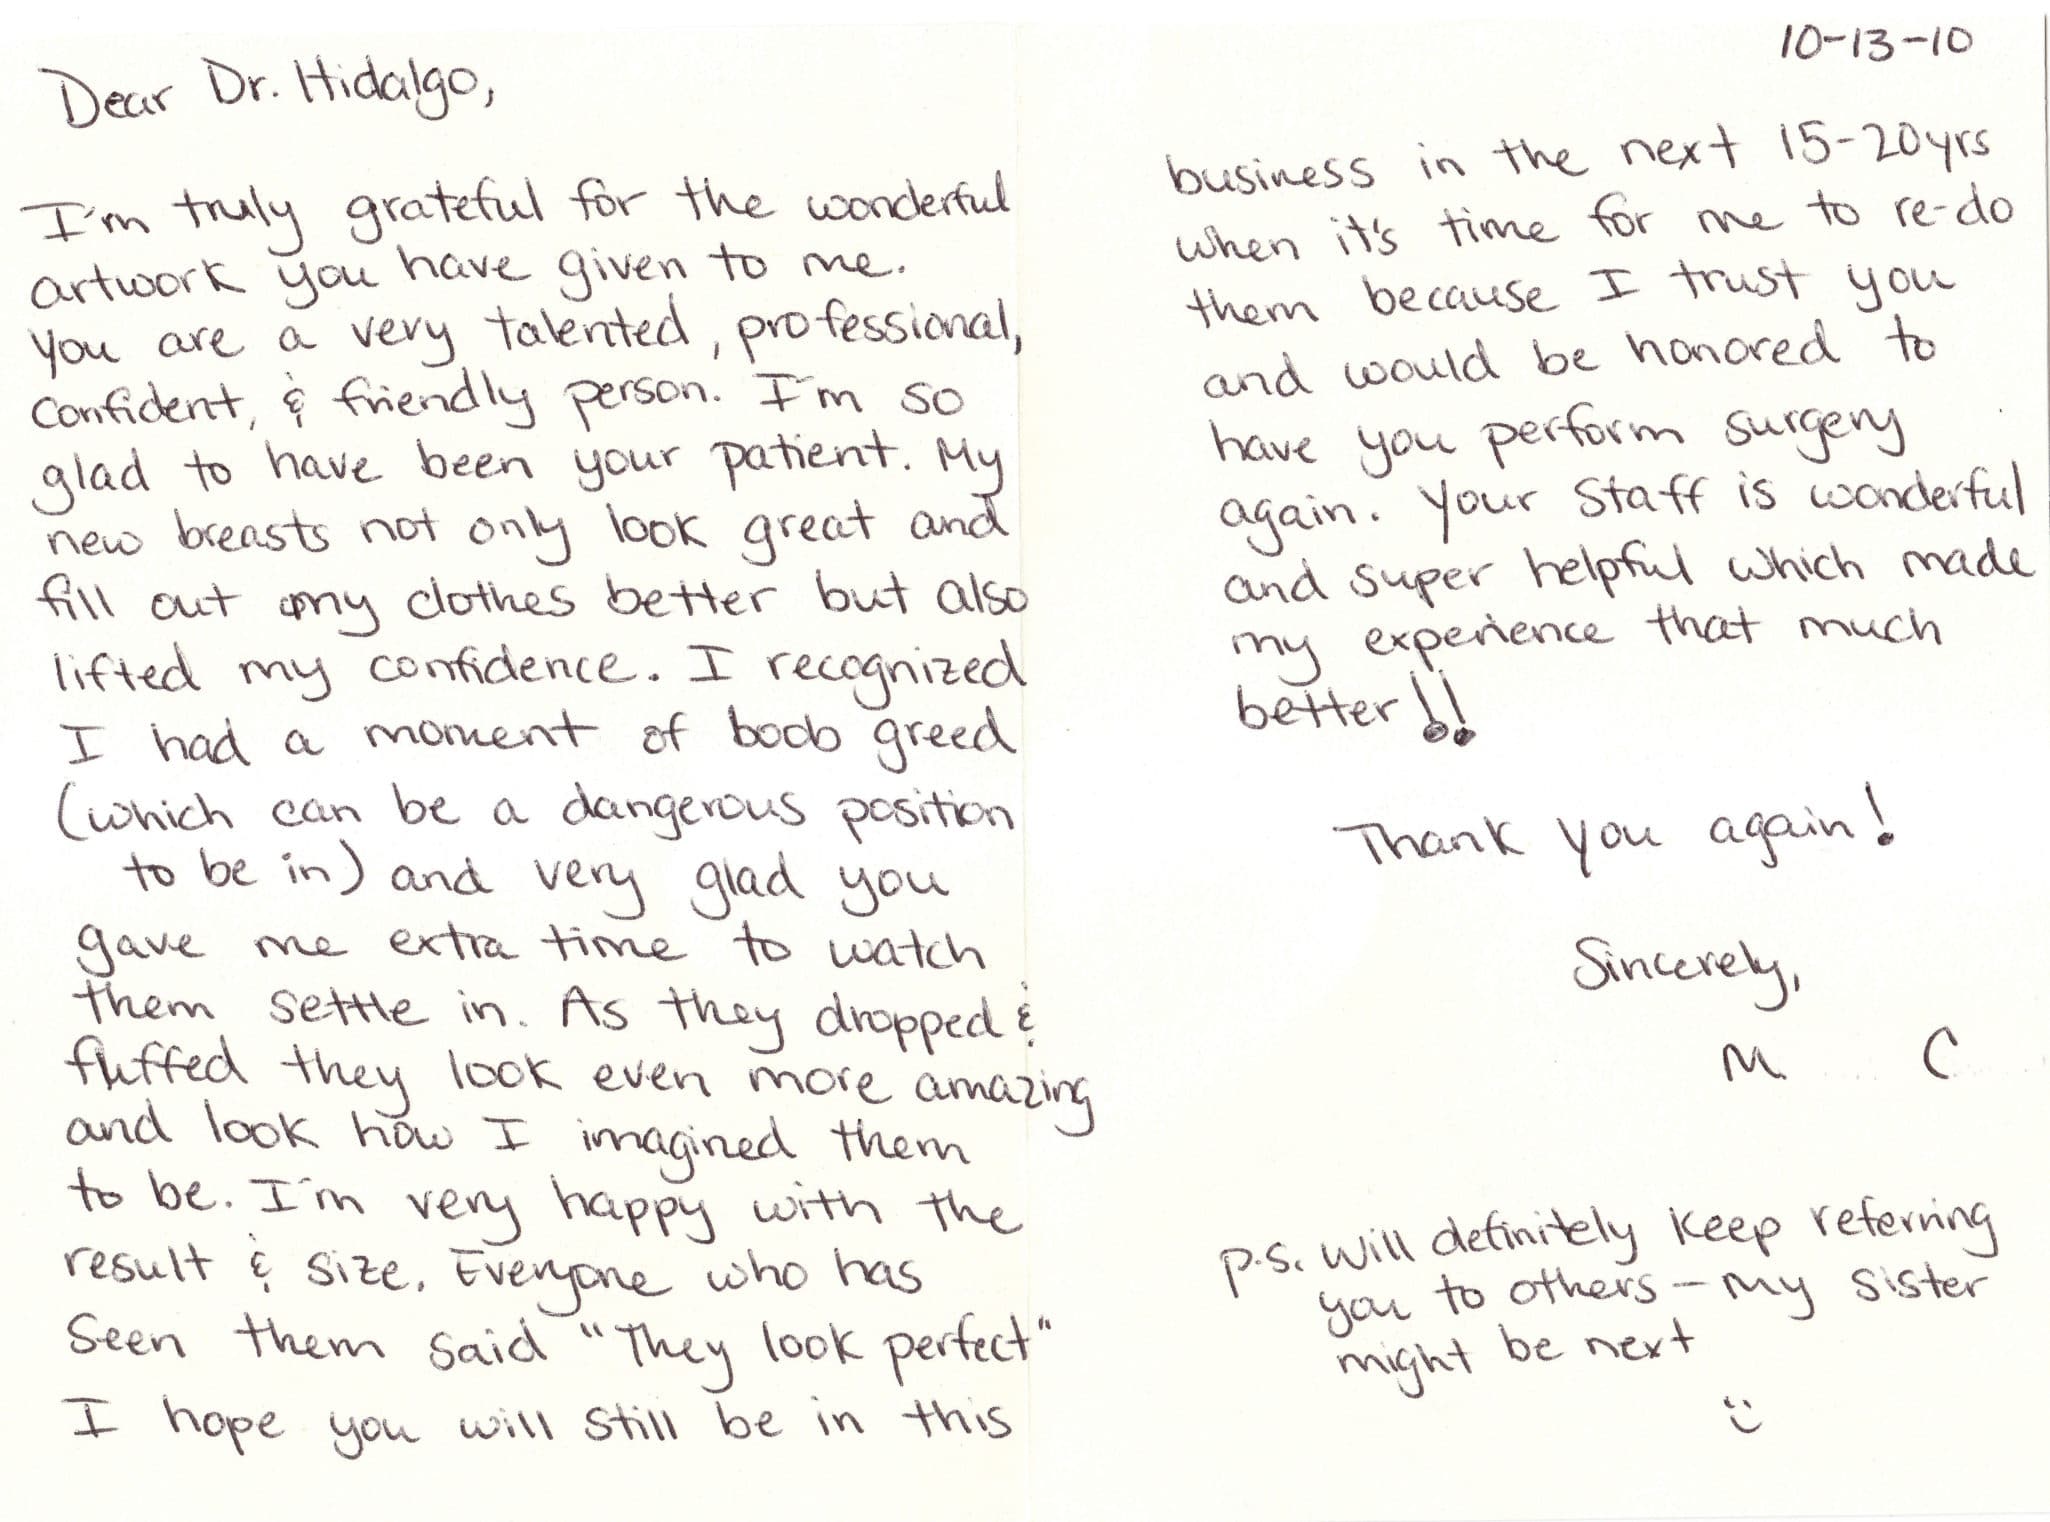 Dear Dr. Hidalgo,
I'm truly grateful for the wonderful
artwork you have given to me.
You are a very talented, professional,
confident, & friendly person. I'm so
glad to have been your patient. My
new breasts not only look great and
fill out my clothes better but also
lifted my confidence. I recognized
I had a moment of boob greed
(which can be a dangerous position
to be in) and very glad you
gave me extra time to watch
them settle in. As they dropped &
fluffed they look even more amazing
and look how I imagined them
to be. I'm very happy with the
result & size. Everyone who has
seen them said "They look perfect"
I hope you will still be in this
10-13-10
business in the next 15-20yrs
when it's time for me to re-do
them because I trust you
and would be honored to
have you perform surgery
again. Your staff is wonderful
and super helpful which made
my experience that much
better!!
Thank you again!
Sincerely,
M C
p.s. Will definitely keep referring
you to others - my sister
might be next